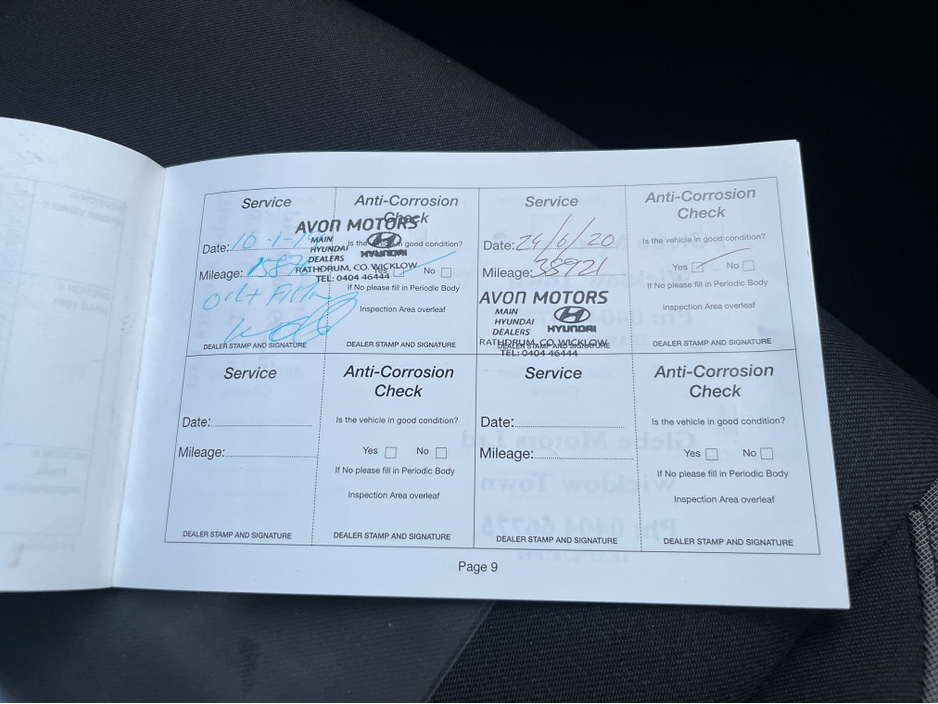 Service
Anti-Corrosion
Check
AVON MOTORS
MAIN
HYUNDAI
DEALERS
HYUNDAI
RATHDRUM, CO. WICKLOW
TEL: 0404 46444
Date: 10-1-
Mileage:
Is the vehicle in good condition?
Yes No
If No please fill in Periodic Body
Inspection Area overleaf
DEALER STAMP AND SIGNATURE
DEALER STAMP AND SIGNATURE
Service
Date: 24/6/20
Mileage: 38921
AVON MOTORS
MAIN
HYUNDAI
DEALERS
HYUNDAI
RATHDRUM, CO. WICKLOW
TEL: 0404 46444
DEALER STAMP AND SIGNATURE
Anti-Corrosion
Check
Is the vehicle in good condition?
Yes No
If No please fill in Periodic Body
Inspection Area overleaf
DEALER STAMP AND SIGNATURE
Service
Date:
Mileage:
DEALER STAMP AND SIGNATURE
Anti-Corrosion
Check
Is the vehicle in good condition?
Yes No
If No please fill in Periodic Body
Inspection Area overleaf
DEALER STAMP AND SIGNATURE
Service
Date:
Mileage:
DEALER STAMP AND SIGNATURE
Anti-Corrosion
Check
Is the vehicle in good condition?
Yes No
If No please fill in Periodic Body
Inspection Area overleaf
DEALER STAMP AND SIGNATURE
Page 9